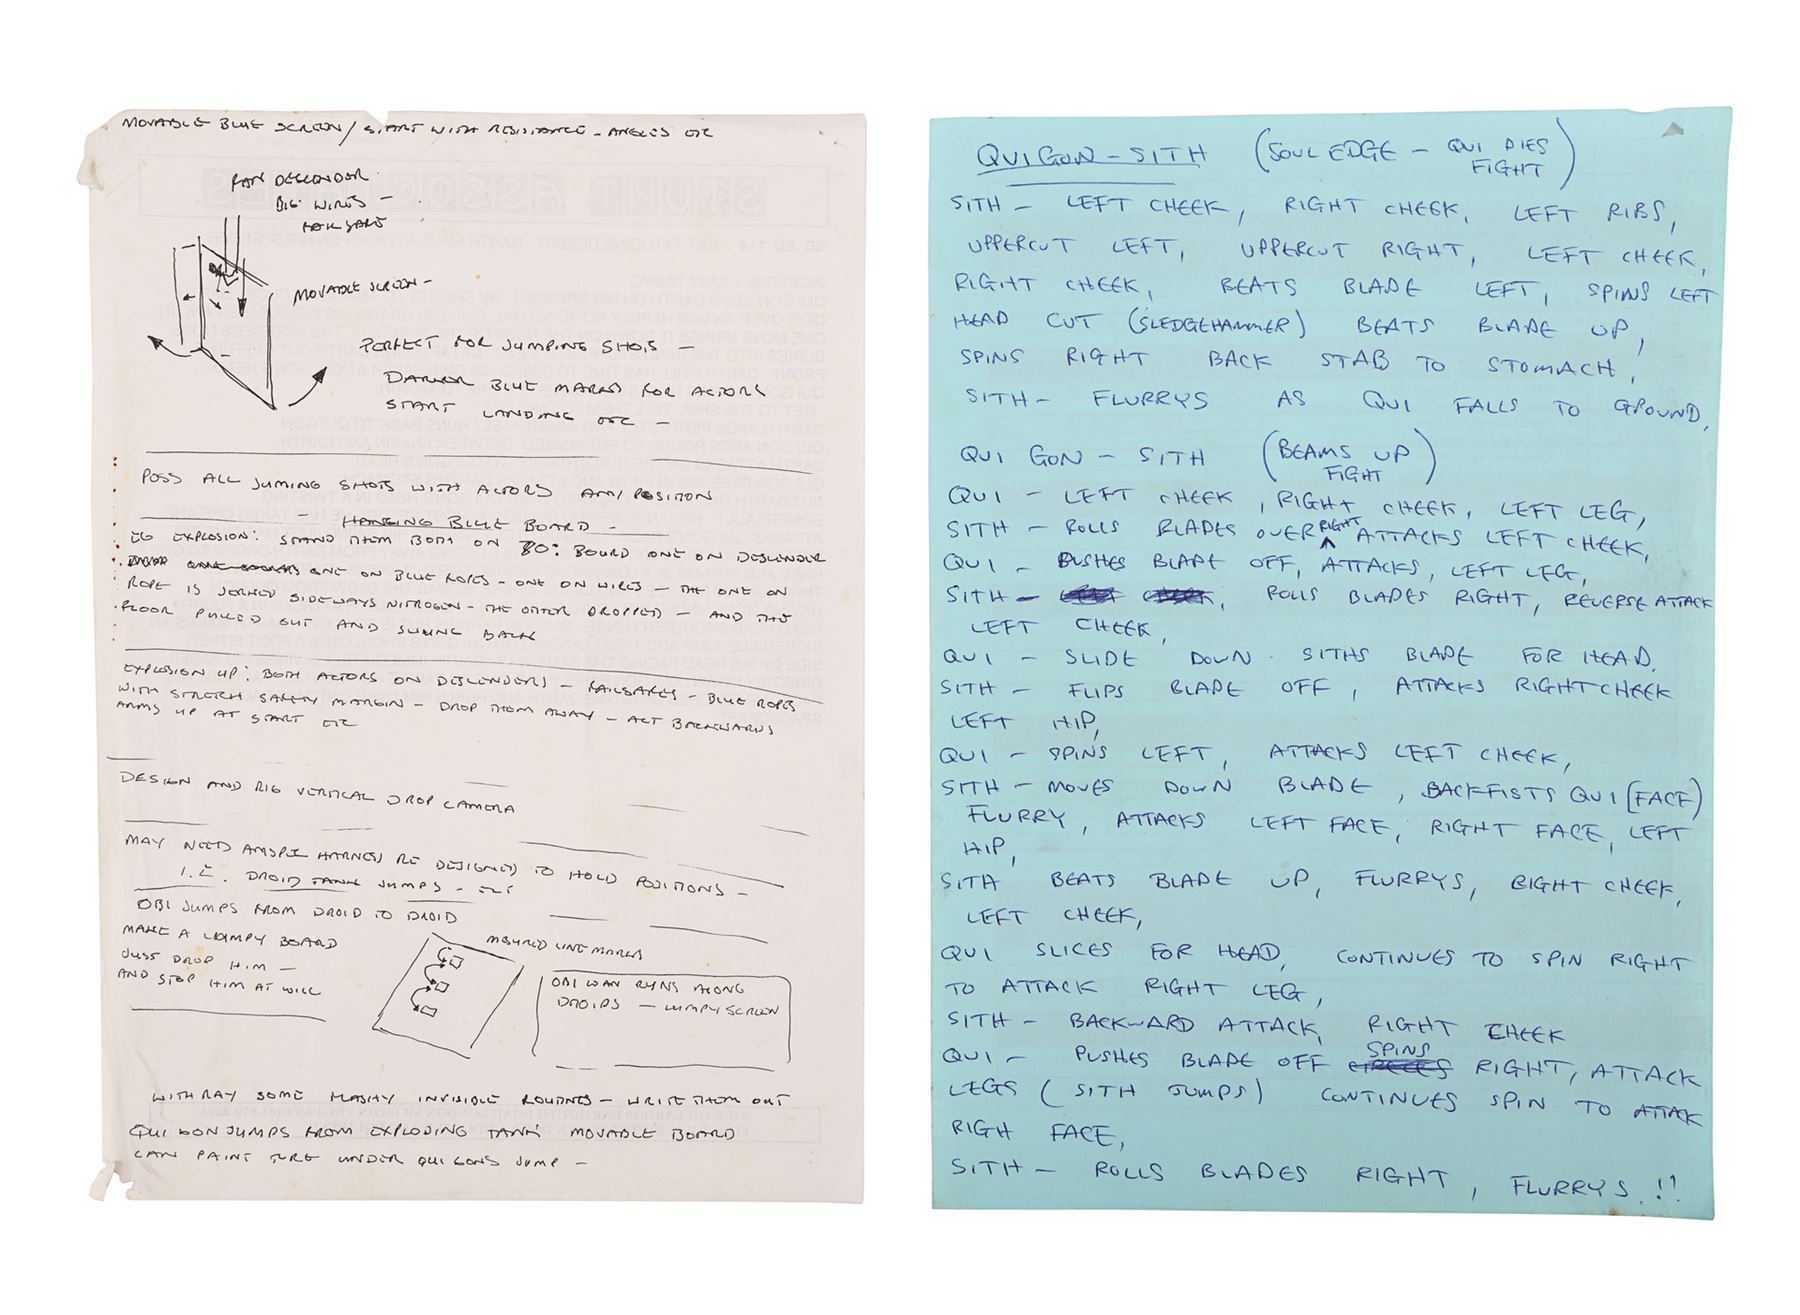 MOVABLE BLUE SCREEN / START WITH RESISTANCE - ANGLES ETC
FAN DESCENDER.
BIG WIRES -
MOVABLE SCREEN -
PERFECT FOR JUMPING SHOTS -
DARKER BLUE MARKS FOR ACTORS
START LANDING ETC -
POSS ALL JUMING SHOTS WITH ACTORS ANY POSITION
- HANGING BLUE BOARD -
EG EXPLOSION: STAND THEM BOTH ON 80: BOURD ONE ON DESCENDER
ONE ON BLUE ROPES - ONE ON WIRES - THE ONE ON
ROPE IS JERKED SIDEWAYS NITROGEN - THE OTHER DROPPED - AND THE
FLOOR PULLED OUT AND SWUNG BACK
EXPLOSION UP: BOTH ACTORS ON DESCENDERS - RAILSAFES - BLUE ROPES
WITH STRETCH SAFETY MARGIN - DROP THEM AWAY - ACT BACKWARDS
ARMS UP AT START ETC
DESIGN AND RIG VERTICAL DROP CAMERA
MAY NEED HARNESS RE DESIGNED TO HOLD POSITIONS -
I.E. DROID TANK JUMPS - ETC
OBI JUMPS FROM DROID TO DROID
MAKE A LUMPY BOARD
JUST DROP HIM -
AND STOP HIM AT WILL
LINE MARKS
OBI WAN RUNS ALONG
DROIDS - LUMPY SCREEN
WITH RAY SOME FLASHY INVISIBLE ROUTINES - WRITE THEM OUT
QUI GON JUMPS FROM EXPLODING TANK MOVABLE BOARD
CAN PAINT UNDER QUI GONS JUMP -
QUI GON - SITH (SOUL EDGE - QUI DIES
FIGHT)
SITH - LEFT CHEEK, RIGHT CHEEK, LEFT RIBS,
UPPERCUT LEFT, UPPERCUT RIGHT, LEFT CHEEK,
RIGHT CHEEK, BEATS BLADE LEFT, SPINS LEFT
HEAD CUT (SLEDGEHAMMER) BEATS BLADE UP,
SPINS RIGHT BACK STAB TO STOMACH,
SITH - FLURRYS AS QUI FALLS TO GROUND,
QUI GON - SITH (BEAMS UP
FIGHT)
QUI - LEFT CHEEK, RIGHT CHEEK, LEFT LEG,
SITH - ROLLS BLADES OVER RIGHT ATTACKS LEFT CHEEK,
QUI - PUSHES BLADE OFF, ATTACKS, LEFT LEG,
SITH - ROLLS BLADES RIGHT, REVERSE ATTACK
LEFT CHEEK,
QUI - SLIDE DOWN SITHS BLADE FOR HEAD.
SITH - FLIPS BLADE OFF, ATTACKS RIGHT CHEEK
LEFT HIP,
QUI - SPINS LEFT, ATTACKS LEFT CHEEK,
SITH - MOVES DOWN BLADE, BACKFISTS QUI (FACE)
FLURRY, ATTACKS LEFT FACE, RIGHT FACE, LEFT
HIP,
SITH BEATS BLADE UP, FLURRYS, RIGHT CHEEK,
LEFT CHEEK,
QUI SLICES FOR HEAD, CONTINUES TO SPIN RIGHT
TO ATTACK RIGHT LEG,
SITH - BACKWARD ATTACK, RIGHT CHEEK
QUI - PUSHES BLADE OFF SPINS RIGHT, ATTACK
LEGS (SITH JUMPS) CONTINUES SPIN TO ATTACK
RIGH FACE,
SITH - ROLLS BLADES RIGHT, FLURRYS.!!